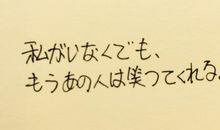 私がいなくても、
もうあの人は笑ってくれる。